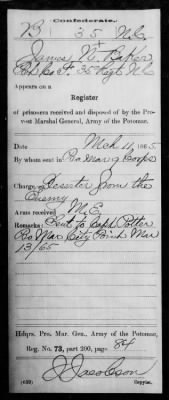 Confederate.
B 35 N.C.
James N. Baker
Corp Co F, 35 Regt N.C.
Appears on a
Register
of prisoners received and disposed of by the Pro-
vost Marshal General, Army of the Potomac.
Date Mch 11, 1865
By whom sent Pro Mar 9 Corps
Charge Deserter from the
Enemy
Arms received M.E.
Remarks: Sent to Capt Potter
Pro Mar City Point Mar
13/65
Hdqrs. Pro. Mar. Gen., Army of the Potomac,
Reg. No. 73, part 200, page 84
J Jacobson
(639) Copyist.